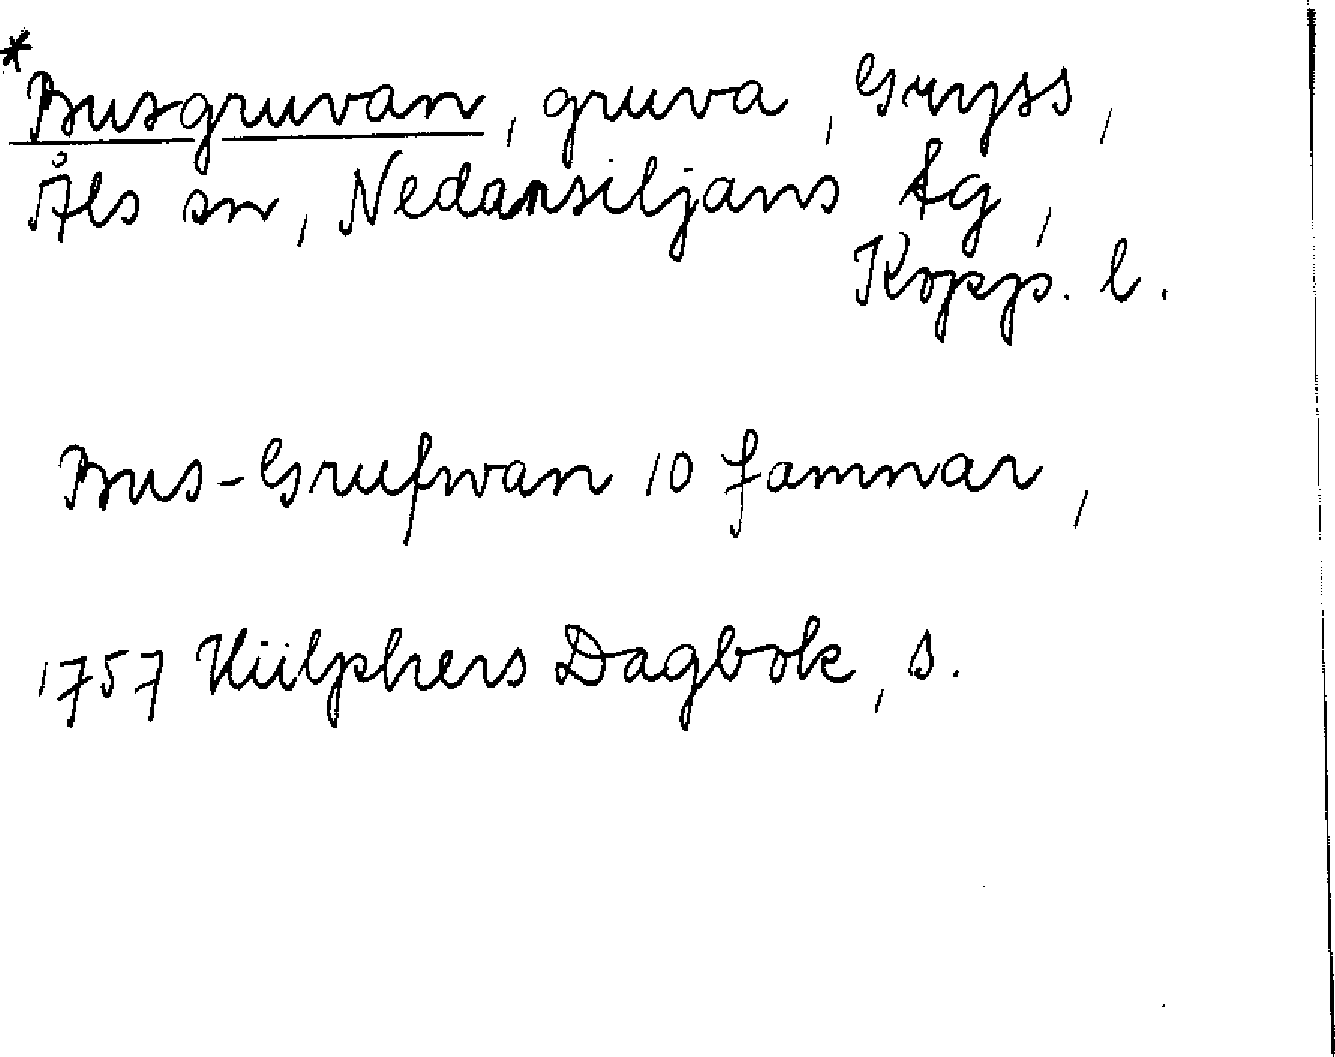 *Busgruvan, gruva, Gryss,
Åls sn, Nedansiljans tg,
Kopp. l.
Bus-Grufwan 10 famnar,
1757 Hülphers Dagbok, s.